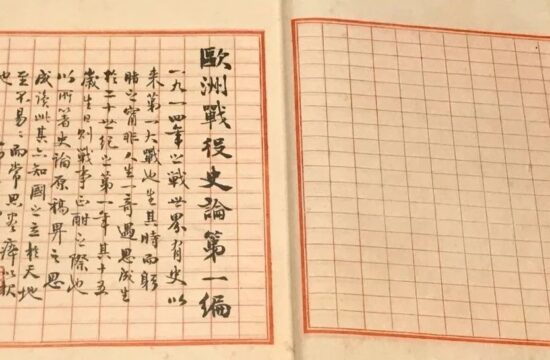 歐洲戰役史論第一編
一九一四年之戰世界有史以
來第一大戰也生其時而躬
睹之寧非人生一奇遇思成生
於二十世紀之第一年其十五
歲生日則戰事正酣之際也
以所著史論原稿畀之思
成讀此其亦知國之立於天地
至不易而常思